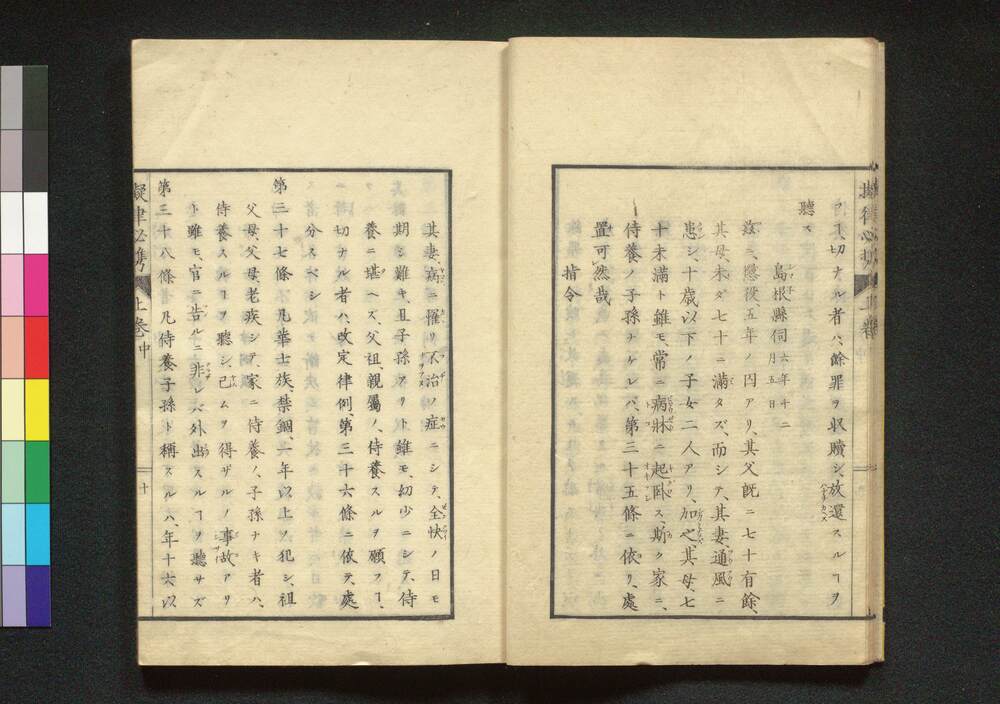 ヿ切ナル者ハ、餘罪ヲ収贖シ、放還スルヿヲ
聽ス
島根縣伺 六年十二月五日
茲ニ、懲役、五年ノ囚アリ、其父既ニ七十有餘、
其母、未ダ七十ニ滿タズ、而シテ、其妻通風ニ
患シ、十歳以下ノ子女二人アリ、加之、其母、七
十未滿ト雖モ、常ニ病牀ニ起臥ス、斯ク家ニ、
侍養ノ子孫ナケレバ、第三十五條ニ依リ、處
置可然哉
指令
其妻、病ニ罹リ、不治ノ症ニシテ、全快ノ日モ
期シ難キ、且子孫アリト雖モ、幼少ニシテ、侍
養ニ堪ヘズ、父祖、親屬ノ、侍養スルヲ願フヿ、
切ナル者ハ、改定律例、第三十六條ニ依テ、處
分スベシ
第三十七條 凡華士族、禁錮、一年以上ヲ犯シ、祖
父母、父母、老疾シテ、家ニ侍養ノ、子孫ナキ者ハ、
侍養スルヿヲ聽シ、已ムヲ得ザルノ事故アリ
ト雖モ、官ニ告ルニ非レバ、外出スルヿヲ聽サズ
第三十八條 凡侍養子孫ト稱スルハ、年十六以
擬律必携 上卷 中 十